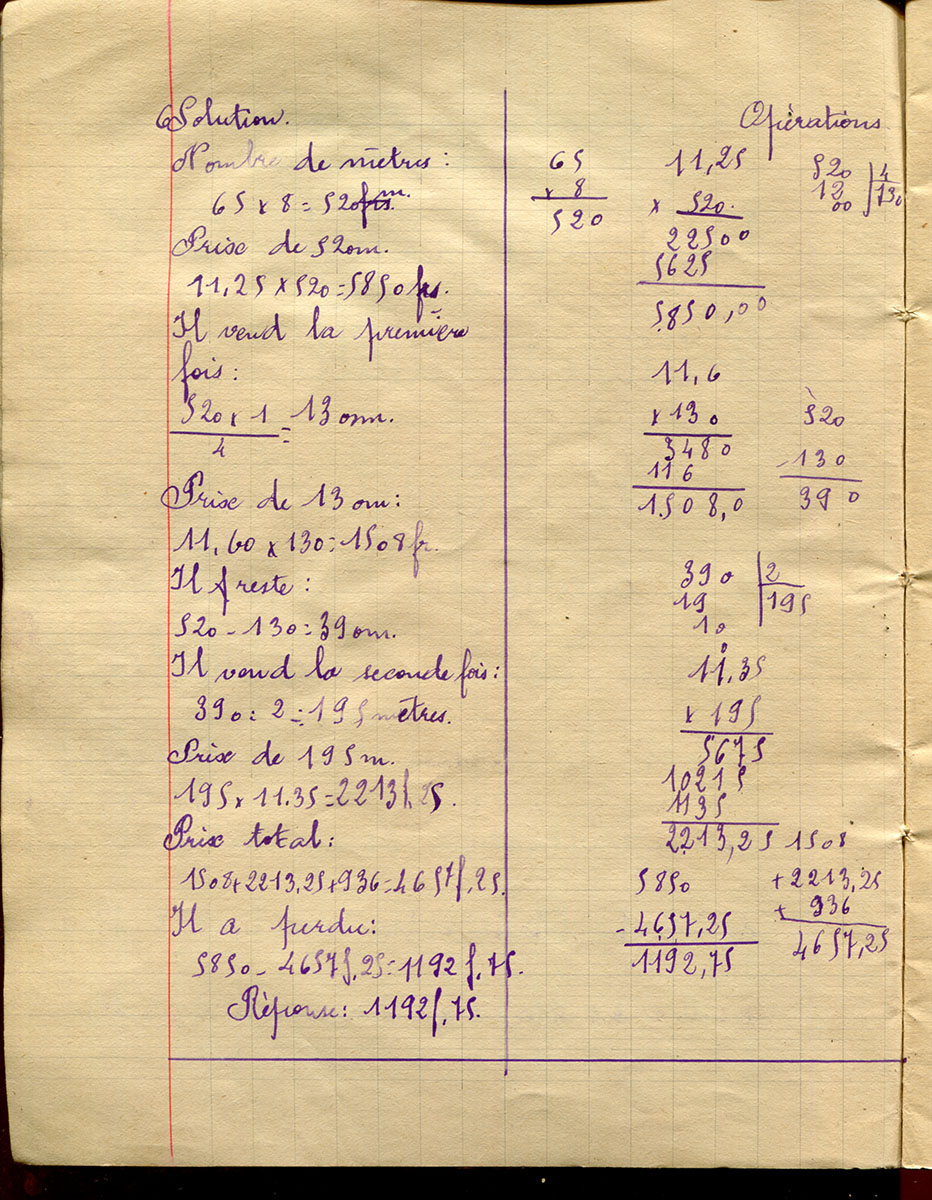 Solution.
Nombre de mètres:
65 x 8 = 520 m.
Prixe de 520m.
11,25 x 520 = 5850 frs.
Il vend la première
fois:
520 x 1 = 130m.
4
Prixe de 130m:
11,60 x 130 = 1508 fr.
Il reste:
520 - 130 = 390m.
Il vend la seconde fois:
390 : 2 = 195 mètres.
Prixe de 195m.
195 x 11.35 = 2213f,25.
Prixe total:
1508 + 2213,25 + 936 = 4657f,25.
Il a perdu:
5850 - 4657f,25 = 1192f,75.
Réponse: 1192f,75.
Opérations
65
x 8
520
11,25
x 520
22500
5625
5850,00
520 4
12 130
00
11,6
x 130
3480
116
1508,0
520
- 130
390
390 2
19 195
10
0
11,35
x 195
5675
10215
1135
2213,25
5850
- 4657,25
1192,75
1508
+ 2213,25
+ 936
4657,25